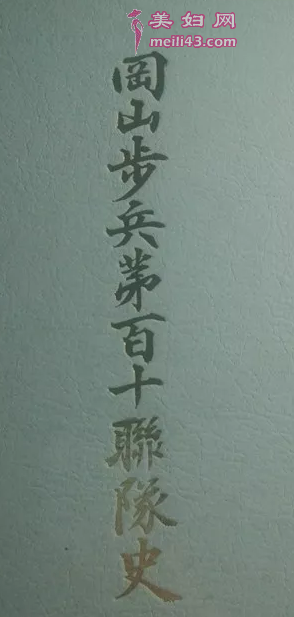 美妇网
meili43.com
岡山歩兵第百十聯隊史